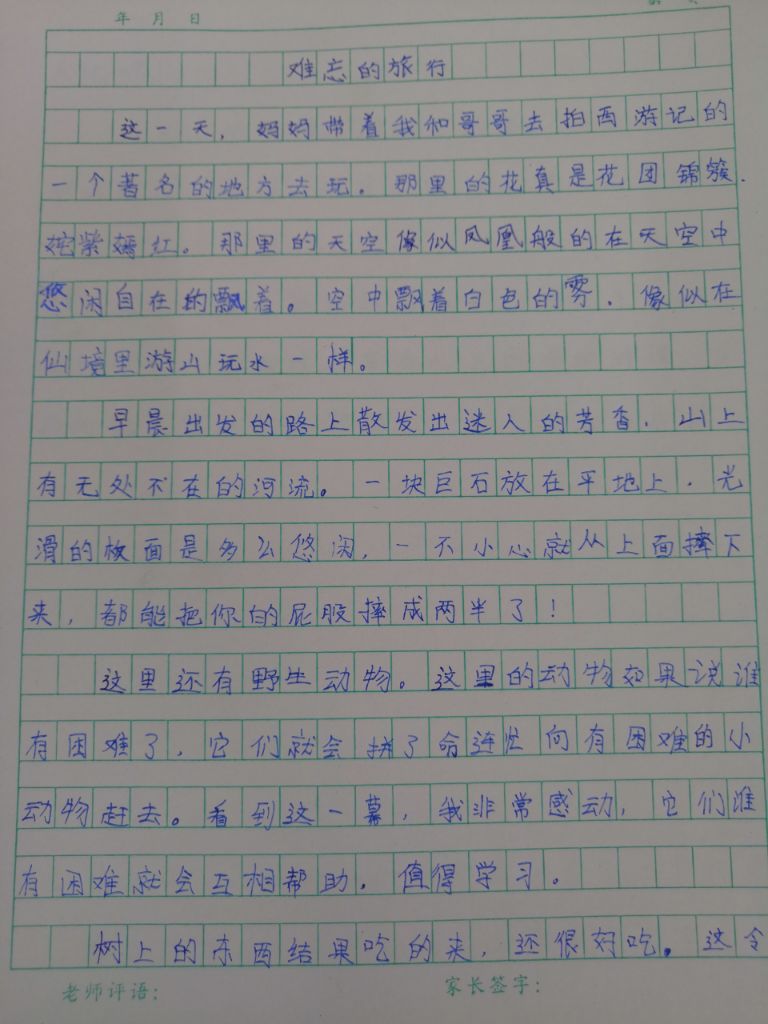 年 月 日
难忘的旅行
这一天，妈妈带着我和哥哥去拍西游记的
一个著名的地方去玩。那里的花真是花团锦簇.
姹紫嫣红。那里的天空像似凤凰般的在天空中
悠闲自在的飘着。空中飘着白色的雾.像似在
仙境里游山玩水一样。
早晨出发的路上散发出迷人的芳香.山上
有无处不在的河流。一块巨石放在平地上.光
滑的板面是多么悠闲,一不小心就从上面摔下
来,都能把你的屁股摔成两半了!
这里还有野生动物。这里的动物如果说谁
有困难了,它们就会拼了命连忙向有困难的小
动物赶去。看到这一幕,我非常感动,它们谁
有困难就会互相帮助.值得学习。
树上的东西结果吃的来,还很好吃.这令
老师评语:
家长签字: